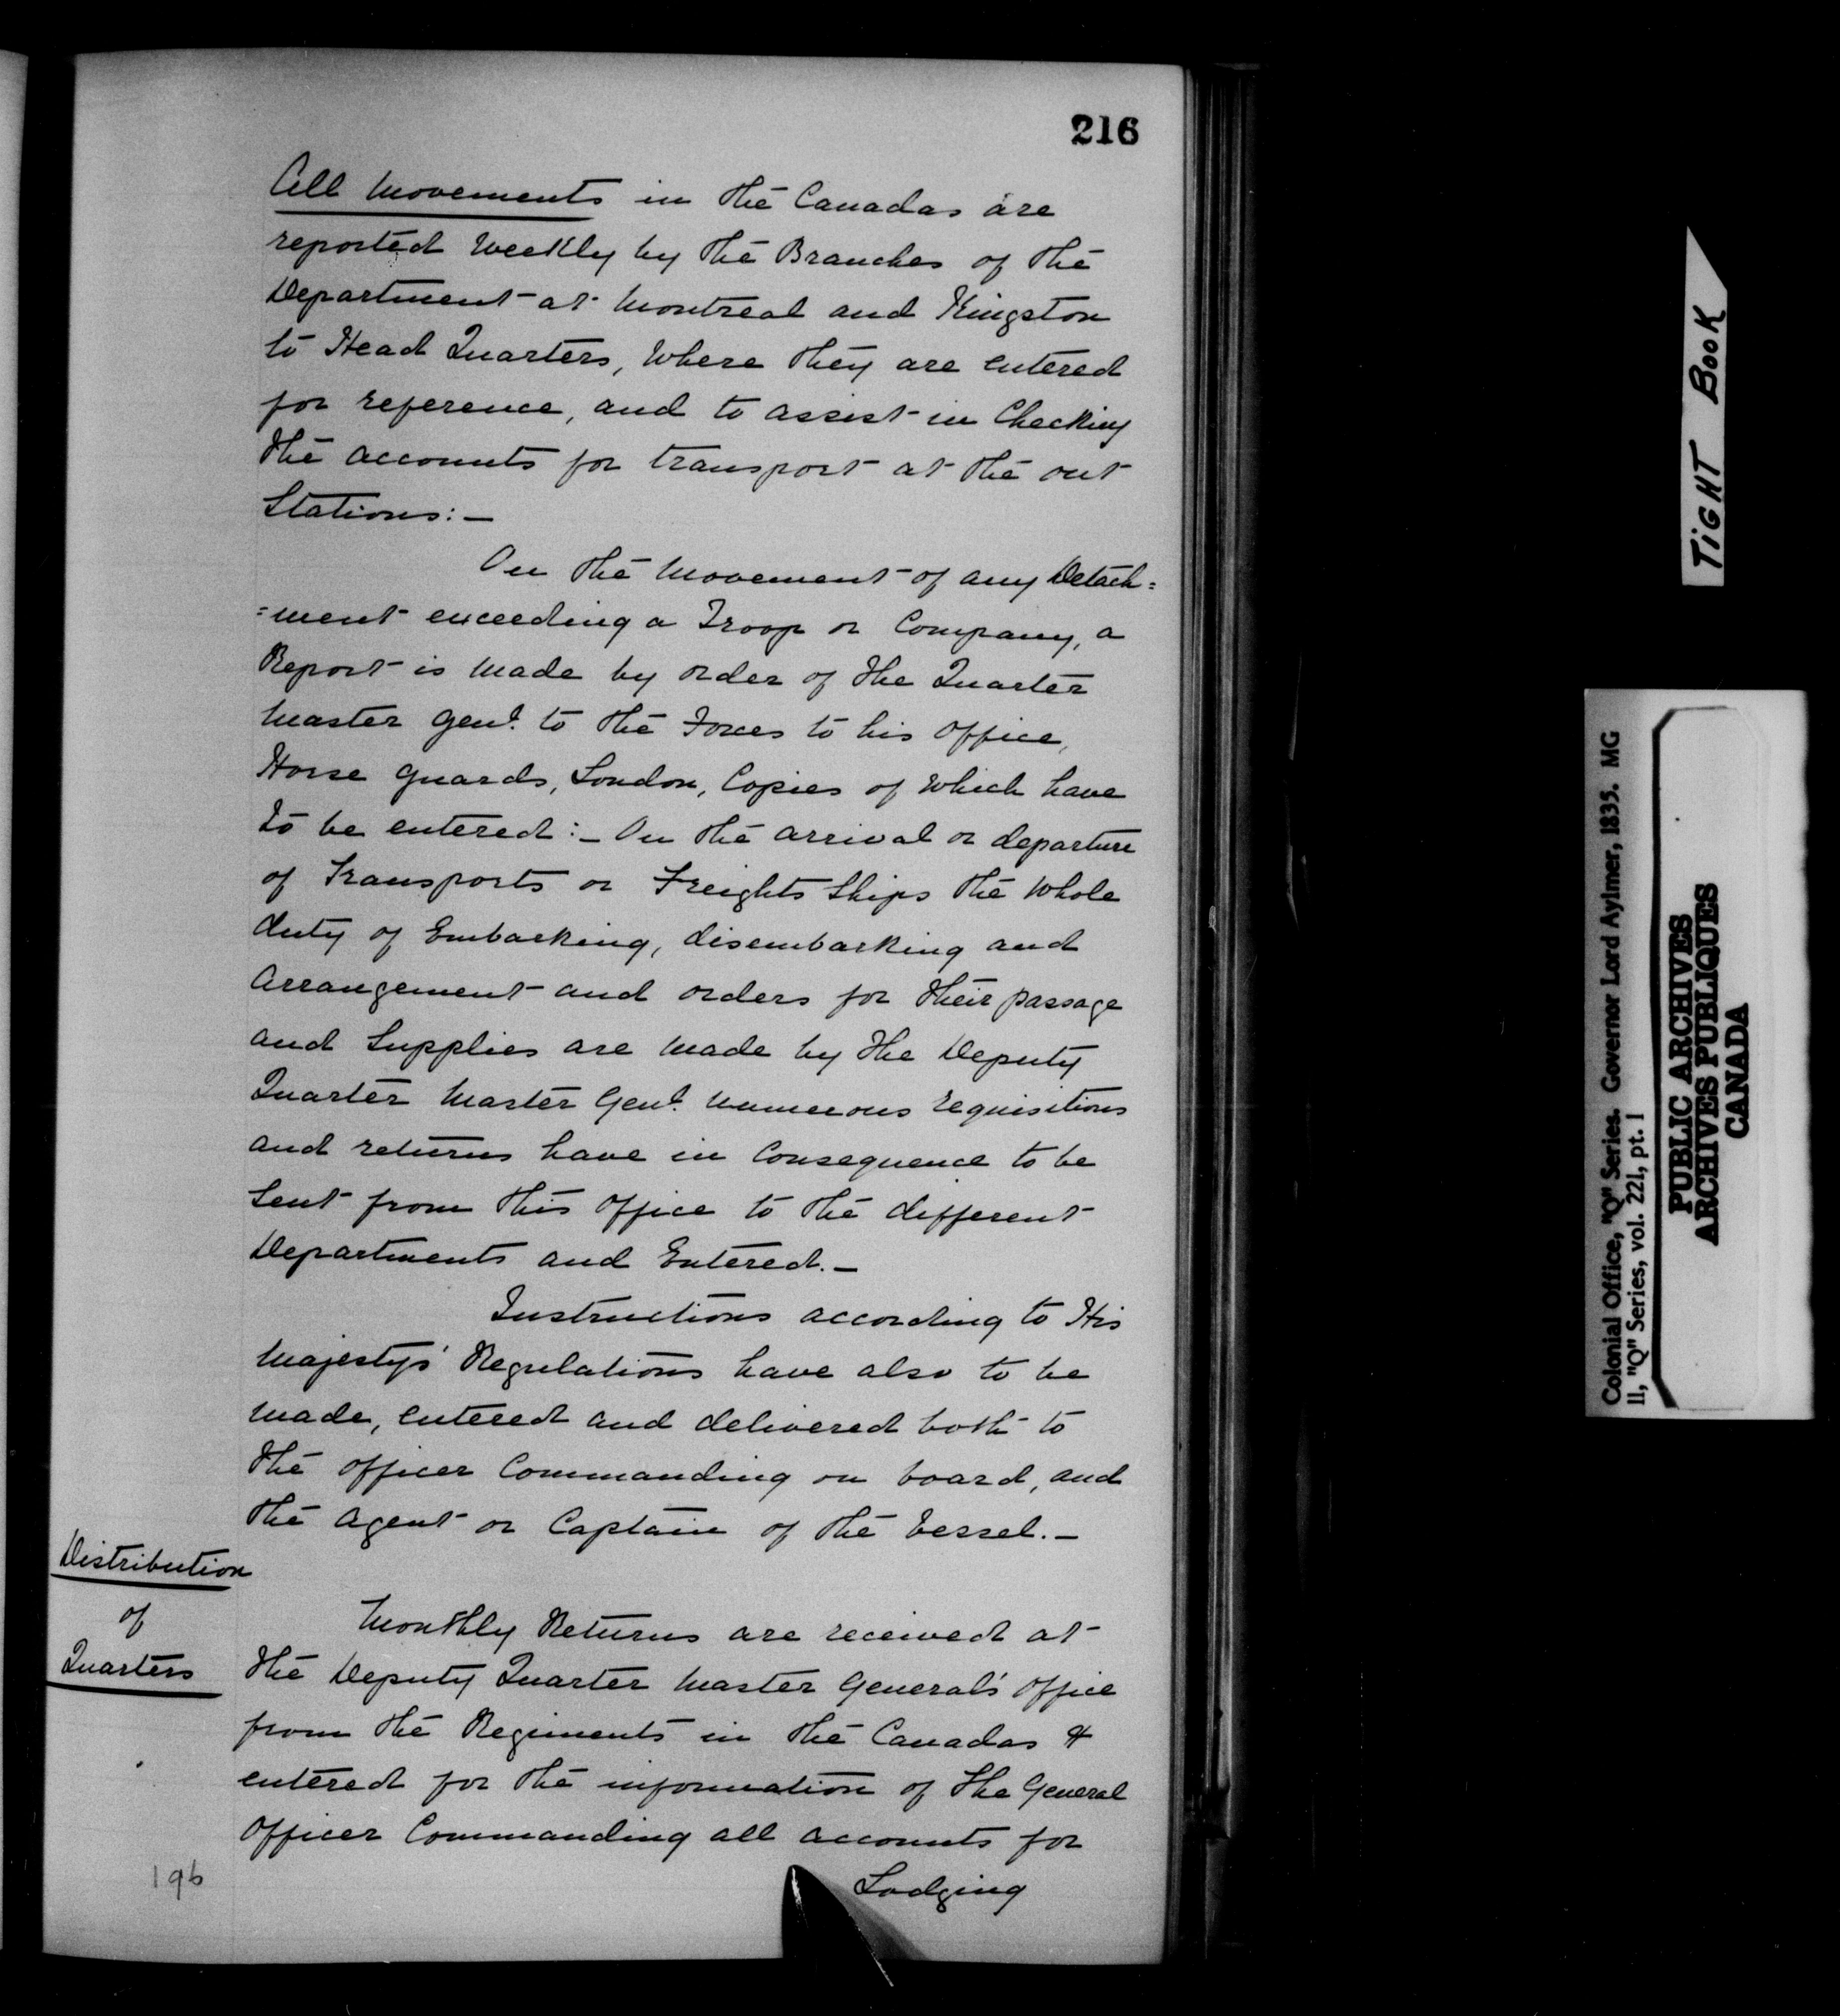 216
All movements in the Canadas are
reported Weekly by the Branches of the
Department at Montreal and Kingston
to Head Quarters, Where they are entered
for reference, and to assist in Checking
the accounts for transport at the out
Stations:—
On the Movement of any Detach=
=ment exceeding a Troop or Company, a
Report is made by order of the Quarter
Master Genl. to the Forces to his Office,
Horse Guards, London, Copies of Which have
to be entered:— On the arrival or departure
of Transports or Freights Ships the Whole
duty of Embarking, disembarking and
Arrangement and orders for their passage
and Supplies are made by the Deputy
Quarter Master Genl. Numerous requisitions
and returns have in Consequence to be
Sent from this Office to the different
Departments and Entered.—
Instructions according to His
Majestys' Regulations have also to be
made, entered and delivered both to
the Officer Commanding on board, and
the Agent or Captain of the Vessel.—
Distribution
of
Quarters
Monthly Returns are received at
the Deputy Quarter Master General's Office
from the Regiments in the Canadas &
entered for the information of the General
Officer Commanding all accounts for
Lodging
196
TIGHT BOOK
Colonial Office, "Q" Series. Governor Lord Aylmer, 1835. MG
11, "Q" Series, vol. 221, pt. 1
PUBLIC ARCHIVES
ARCHIVES PUBLIQUES
CANADA